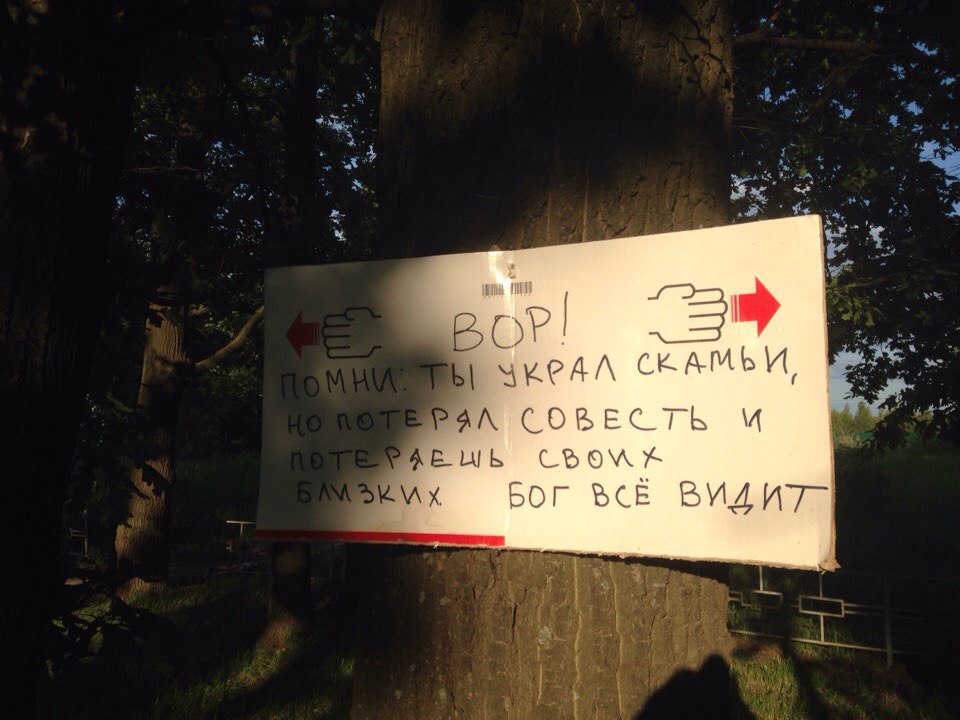 ВОР!
ПОМНИ: ТЫ УКРАЛ СКАМЬИ,
НО ПОТЕРЯЛ СОВЕСТЬ И
ПОТЕРЯЕШЬ СВОИХ
БЛИЗКИХ БОГ ВСЁ ВИДИТ